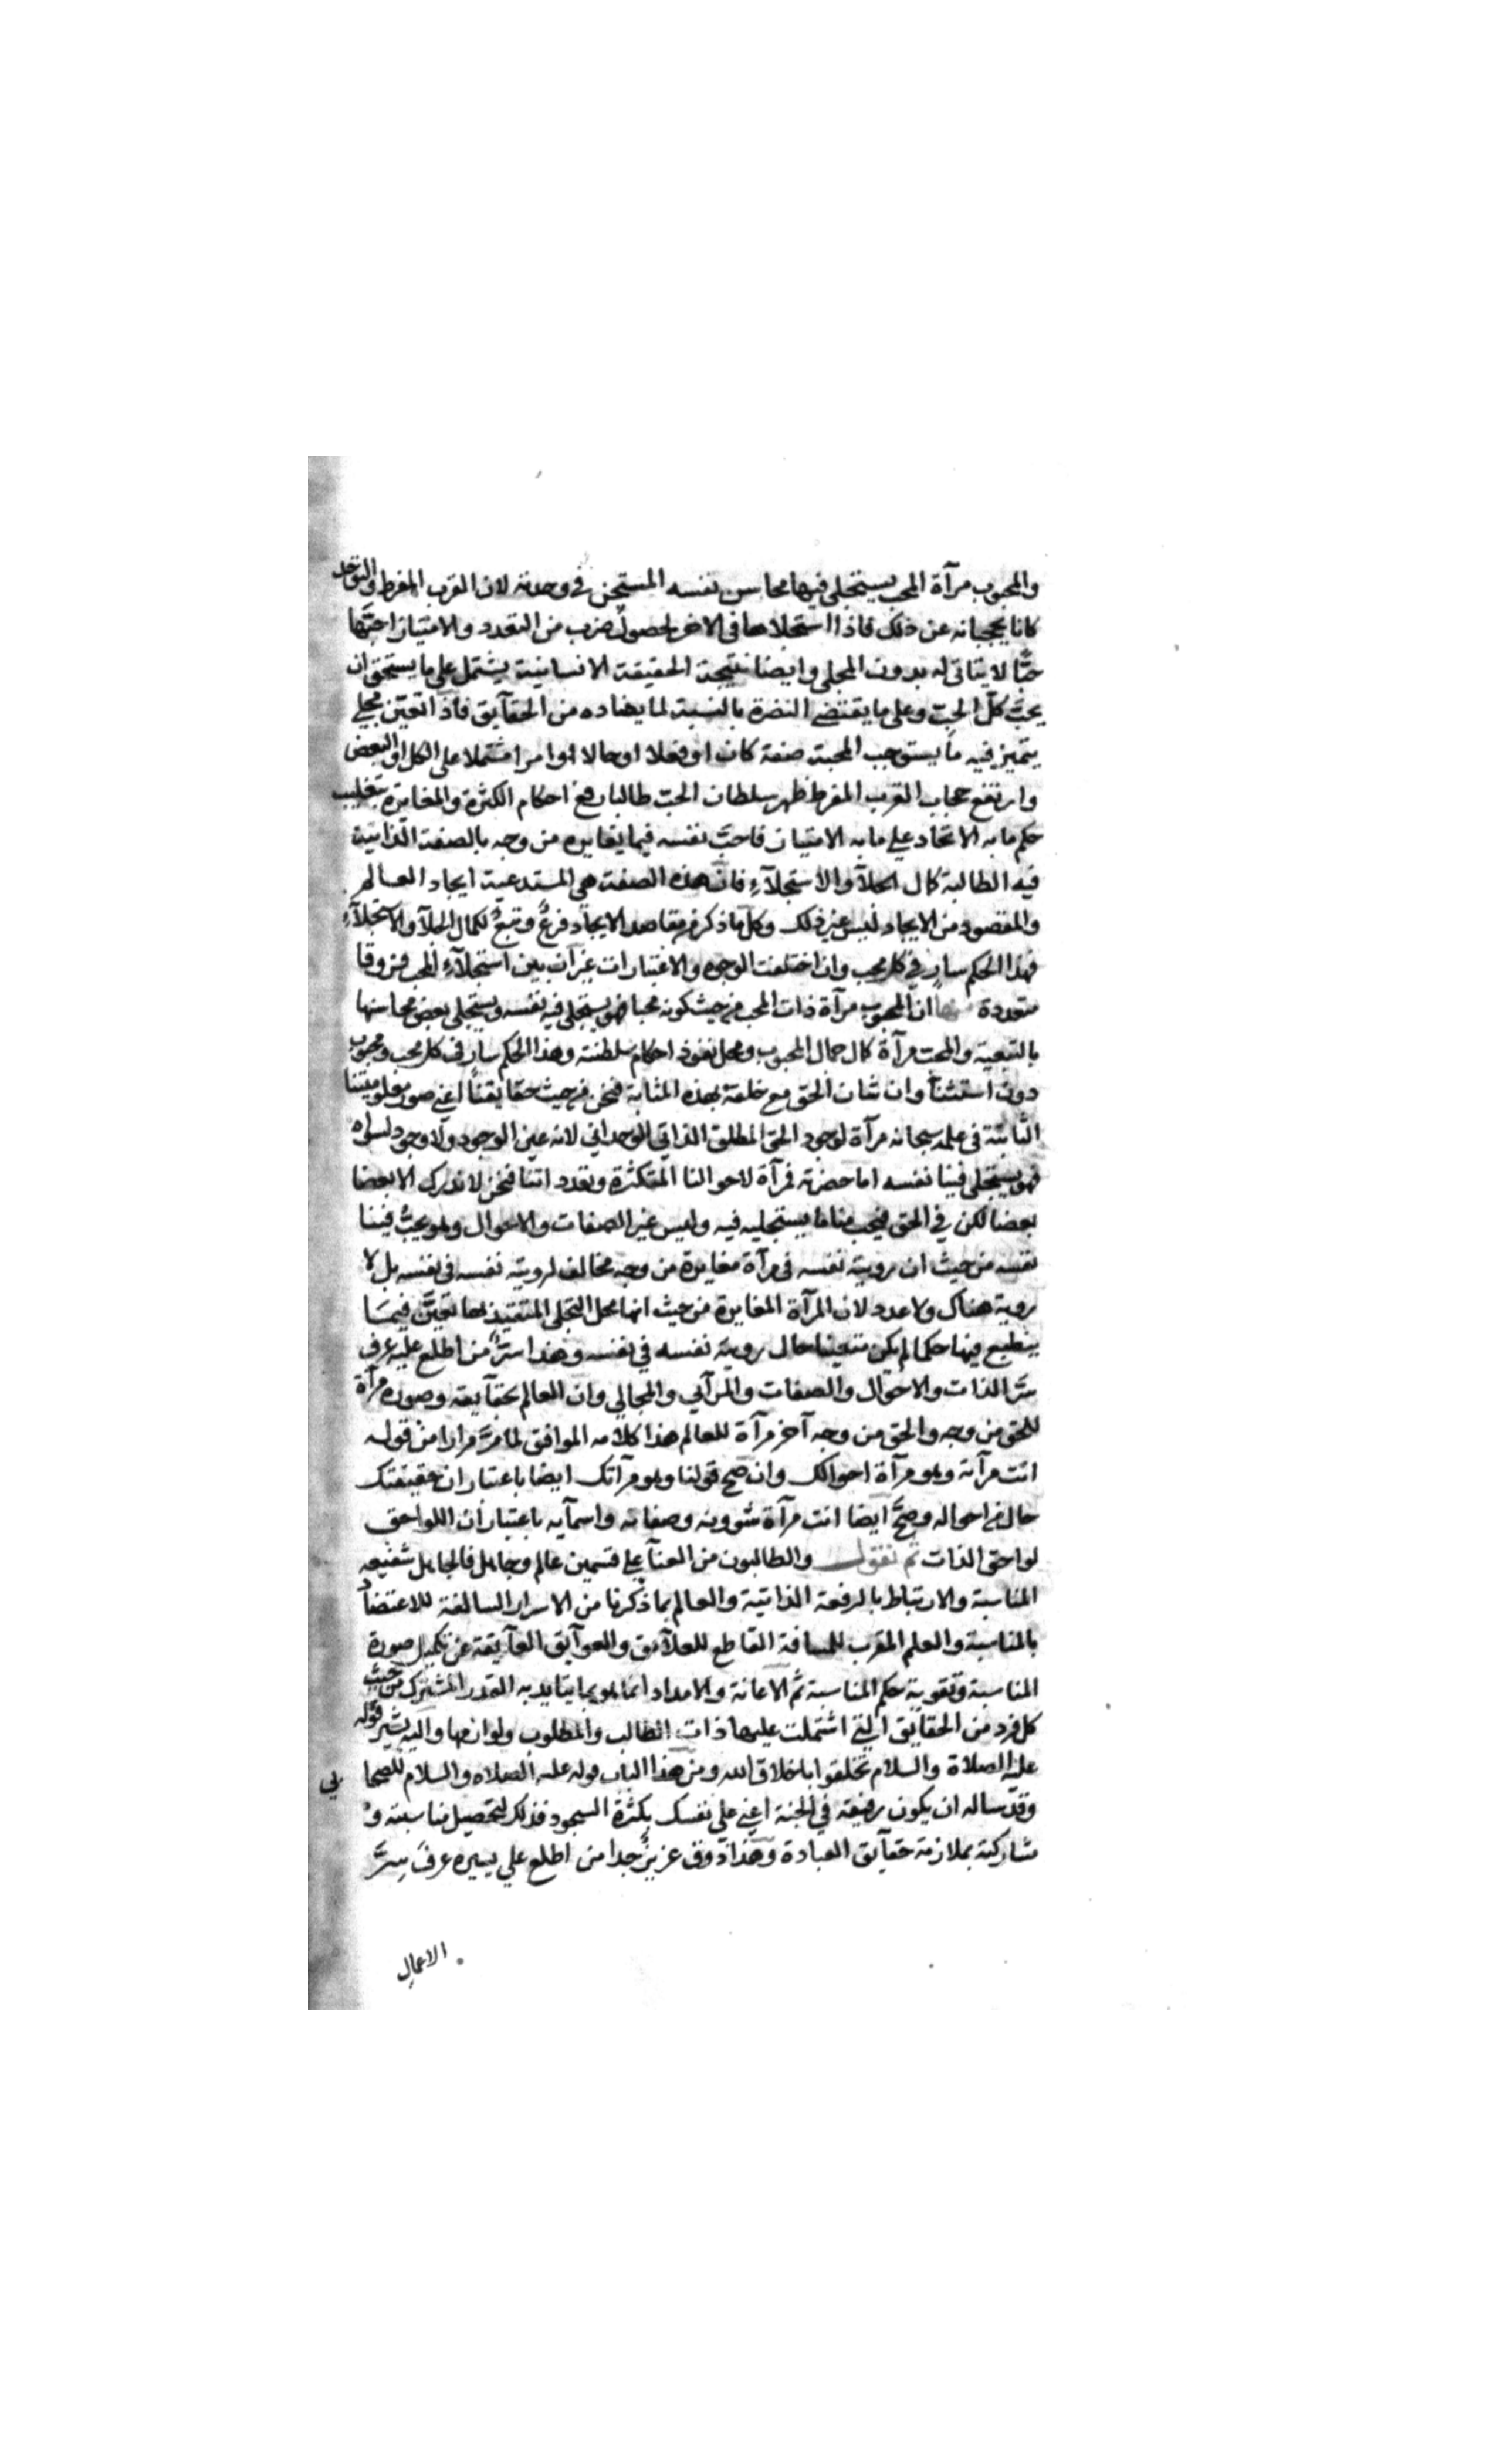 والمحبوب مرآة المحب يستجلي فيها محاسن نفسه المستجن في وحدته لان القرب المفرط والتوحد
كانا يحجبانه عن ذلك فاذا استجلاها في الاخر لحصول ضرب من التعدد والامتياز احبها
حبًّا لا يتاتى له بدون المجلى وايضا نتيجة الحقيقة الانسانية يشتمل على ما يستحق ان
يحبّ كلّ الحبّ وعلى ما يقتضي النضرة بالنسبة لما يضاده من الحقآيق فاذا تعيّن مجلي
يتميز فيه ما يستوجب المحبة صفة كان او فعلا او حالا او امرا مشتملا على الكل او البعض
وارتفع حجاب القرب المفرط ظهر سلطان الحبّ طالبا رفع احكام الكثرة والمغايرة بتغليب
حكم ما به الاتحاد علي ما به الامتياز فاحبّ نفسه فيما يغايره من وجه بالصفة الذاتية
فيه الطالبة كمال الجلآ والاستجلآءِ فان هذه الصفة هي المستدعية ايجاد العالم
والمقصود من الايجاد ليس غير ذلك وكل ما ذكر من مقاصد الايجاد فرعٌ وتبعٌ لكمال الجلآ والاستجلآءِ
فهذا الحكم سارٍ في كل محب وان اختلفت الوجوه والاعتبارات غير ان بين استجلآءِ المحب فروقا
متعددة منها ان المحبوب مرآة ذات المحب من حيث كونه محبا فهو يستجلي فيه نفسه ويستجلي بعض محاسنها
بالتبعية والمحب مرآة كمال جمال المحبوب ومحل نفوذ احكام سلطنته وهذا الحكم سارٍ في كل محب ومحبوب
دون استثنآ وان شان الحق مع خلقه بهذه المثابة فنحن من حيث حقايقنا اعني صور معلوميتنا
الثابتة في علمه سبحانه مرآة لوجود الحق المطلق الذاتي الوحداني لانه عين الوجود ولا وجود لسواه
فهو يستجلي فينا نفسه اما حضرته فمرآة لاحوالنا المتكثرة وتعدداتنا فنحن لا ندرك الا بعضنا
بعضا لكن في الحق فيحب منا ما يستجليه فيه وليس غير الصفات والاحوال وهو يحبّ فينا
نفسه من حيث ان رويته نفسه في مرآة مغايرة من وجه مخالف لرويته نفسه في نفسه بل لا
روية هناك ولا عدد لان المرآة المغايرة من حيث انها محل التجلي المتقيد بها تعيّن فيما
ينطبع فيها حكما لم يكن متعينا حال رويته نفسه في نفسه وهذا سرٌّ من اطلع عليه عرف
سرّ الذات والاحوال والصفات والمرآئي والمجالي وان العالم بحقآيقه وصوره مرآة
للحق من وجه والحق من وجه آخر مرآة للعالم هذا كلامه الموافق لما مرّ مرارا من قوله
انت مرآته وهو مرآة احوالك وان صح قولنا وهو مرآتك ايضا باعتبار ان حقيقتك
حال من احواله وصحّ ايضا انت مرآة شوونه وصفاته واسمآيه باعتبار ان اللواحق
لواحق الذات ثم نقول والطالبون من علي قسمين عالم وجاهل فالجاهل شفيعه
المناسبة والارتباط بالرفعة الذاتية والعالم بما ذكرنا من الاسرار السالفة للاعتضاد
بالمناسبة والعلم المقرب للمسافة القاطع للعلآيق والعوآيق العآيقة عن تكميل صورة
المناسبة وتقوية حكم المناسبة ثم الاعانة والامداد انما هو بما يتايد به القدر المشترك من حيث
كل فرد من الحقايق التي اشتملت عليها ذات الطالب والمطلوب ولوازمها واليه يشير قوله
عليه الصلاة والسلام تخلقوا باخلاق الله ومن هذا الباب قوله عليه الصلاه والسلام للصحابي
وقد ساله ان يكون رفيقه في الجنة اعني علي نفسك بكثرة السجود فذلك لتحصيل مناسبته و
مشاركته بملازمة حقآيق العبادة وهذا ذوق عزيزٌ جدا من اطلع علي يسيره عرف سِرَّ
الاعمال